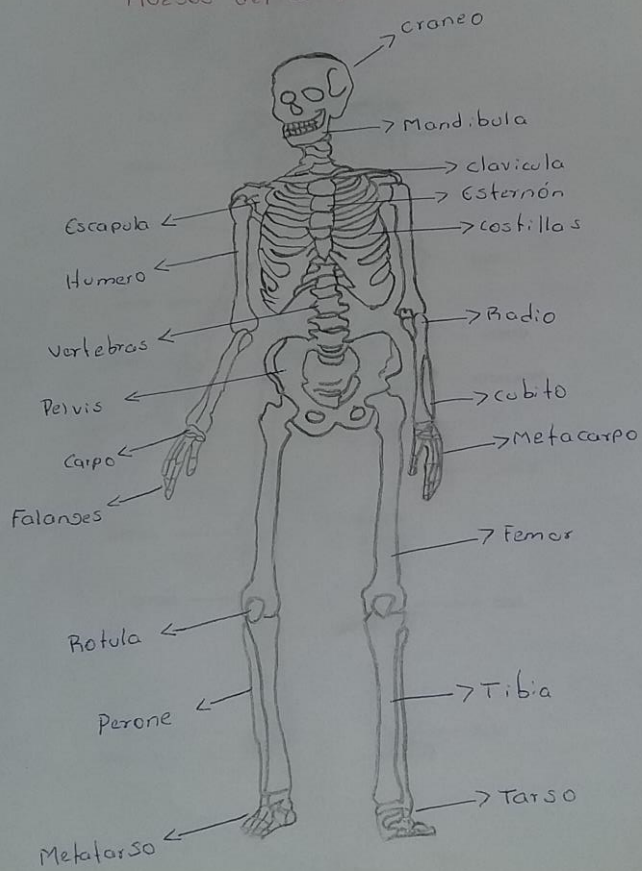 craneo
Mandibula
clavicula
Esternón
costillas
Escapula
Humero
vertebras
Radio
Pelvis
cubito
Carpo
Metacarpo
Falanges
Femur
Rotula
Tibia
Perone
Tarso
Metatarso